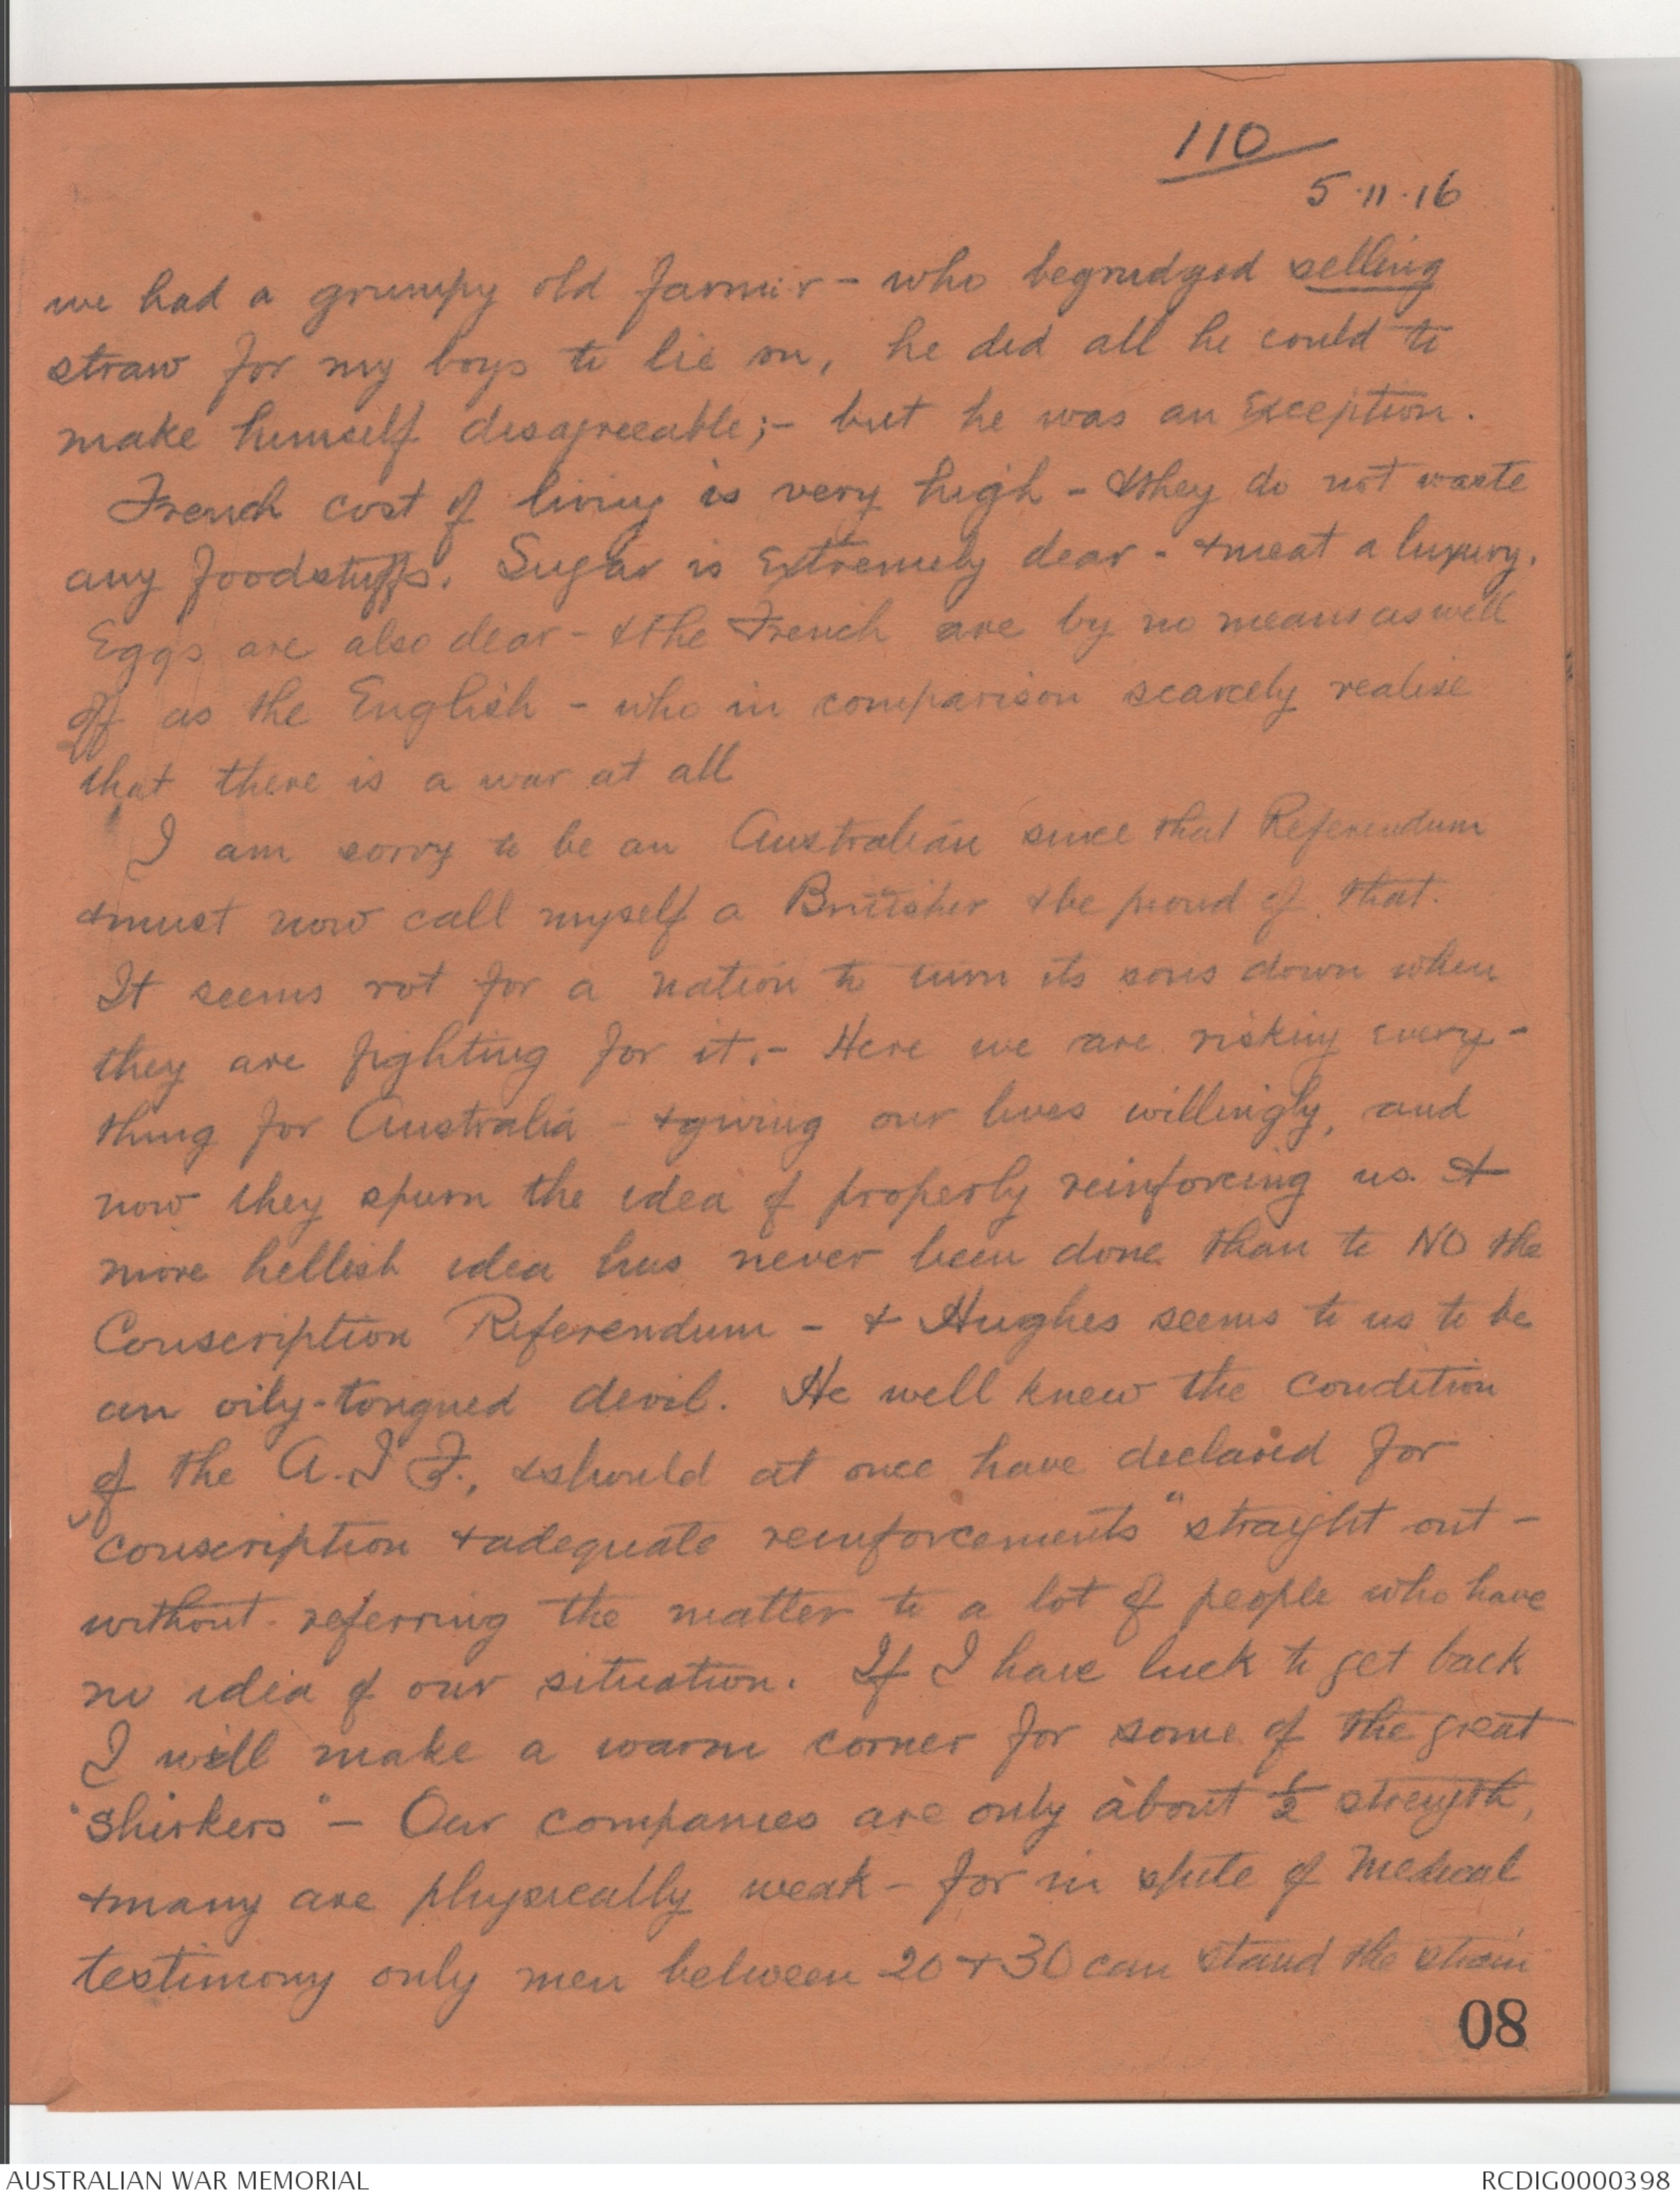 110
5.11.16
we had a grumpy old farmer - who begrudged selling
straw for my boys to lie on, he did all he could to
make himself disagreeable;- but he was an Exception.
French cost of living is very high - & they do not waste
any foodstuffs. Sugar is Extremely dear - & meat a luxury.
Eggs are also dear - & the French are by no means as well
off as the English - who in comparison scarcely realise
that there is a war at all
I am sorry to be an Australian since that Referendum
& must now call myself a Britisher & be proud of that.
It seems rot for a nation to turn its sons down when
they are fighting for it.- Here we are risking every-
thing for Australia - & giving our lives willingly, and
now they spurn the idea of properly reinforcing us. A
more hellish idea has never been done than to NO the
Conscription Referendum - & Hughes seems to us to be
an oily-tongued devil. He well knew the condition
of the A.I.F., & should at once have declared for
"conscription & adequate reinforcements" straight out -
without referring the matter to a lot of people who have
no idea of our situation. If I have luck to get back
I will make a warm corner for some of the great
"shirkers" - Our companies are only about ½ strength,
& many are physically weak - for in spite of Medical
testimony only men between 20 & 30 can stand the strain
08
AUSTRALIAN WAR MEMORIAL
RCDIG0000398